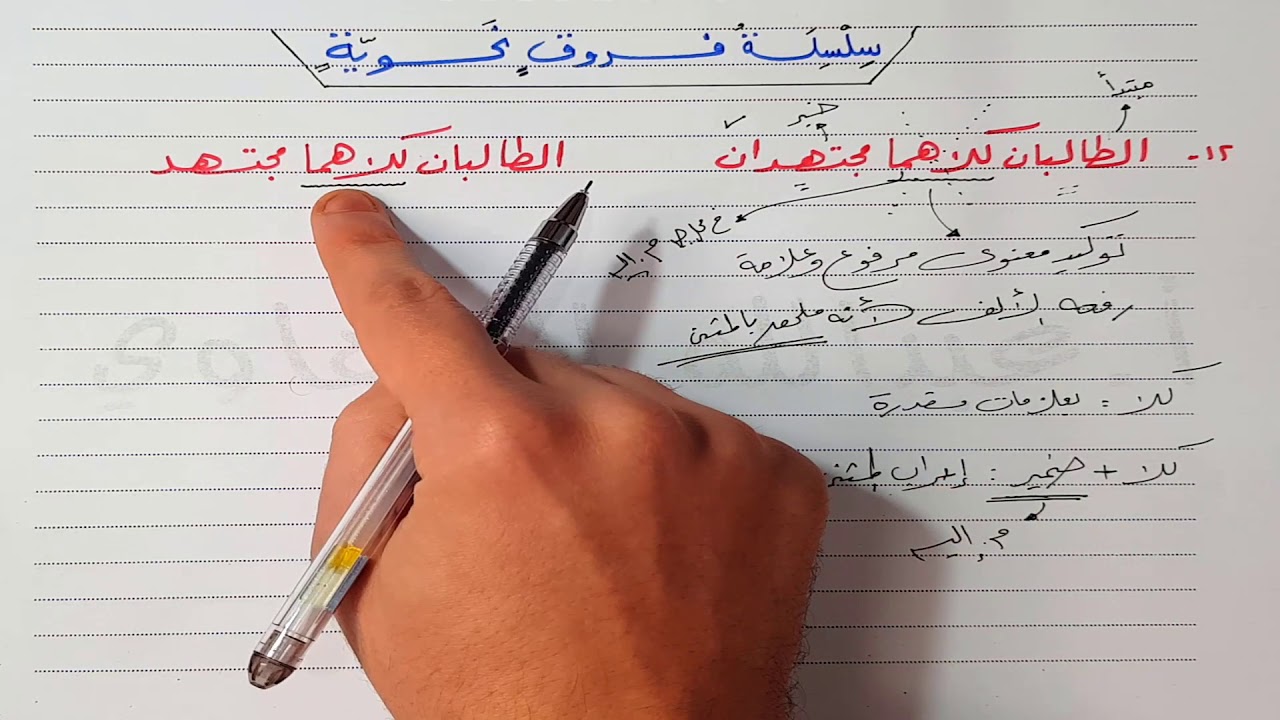 سِلْسِلَةُ فروقٍ نَحويّةٍ
مبتدأ
خبر ✓
١٢- الطالبان كلاهما مجتهدان
الطالبان كلاهما مجتهد
م. إليه
توكيد معنوي مرفوع وعلامة
رفعه الألف لأنه ملحق بالمثنى
كلا : بعلامات مقدرة
كلا + ضمير : إعراب المثنى
م. إليه